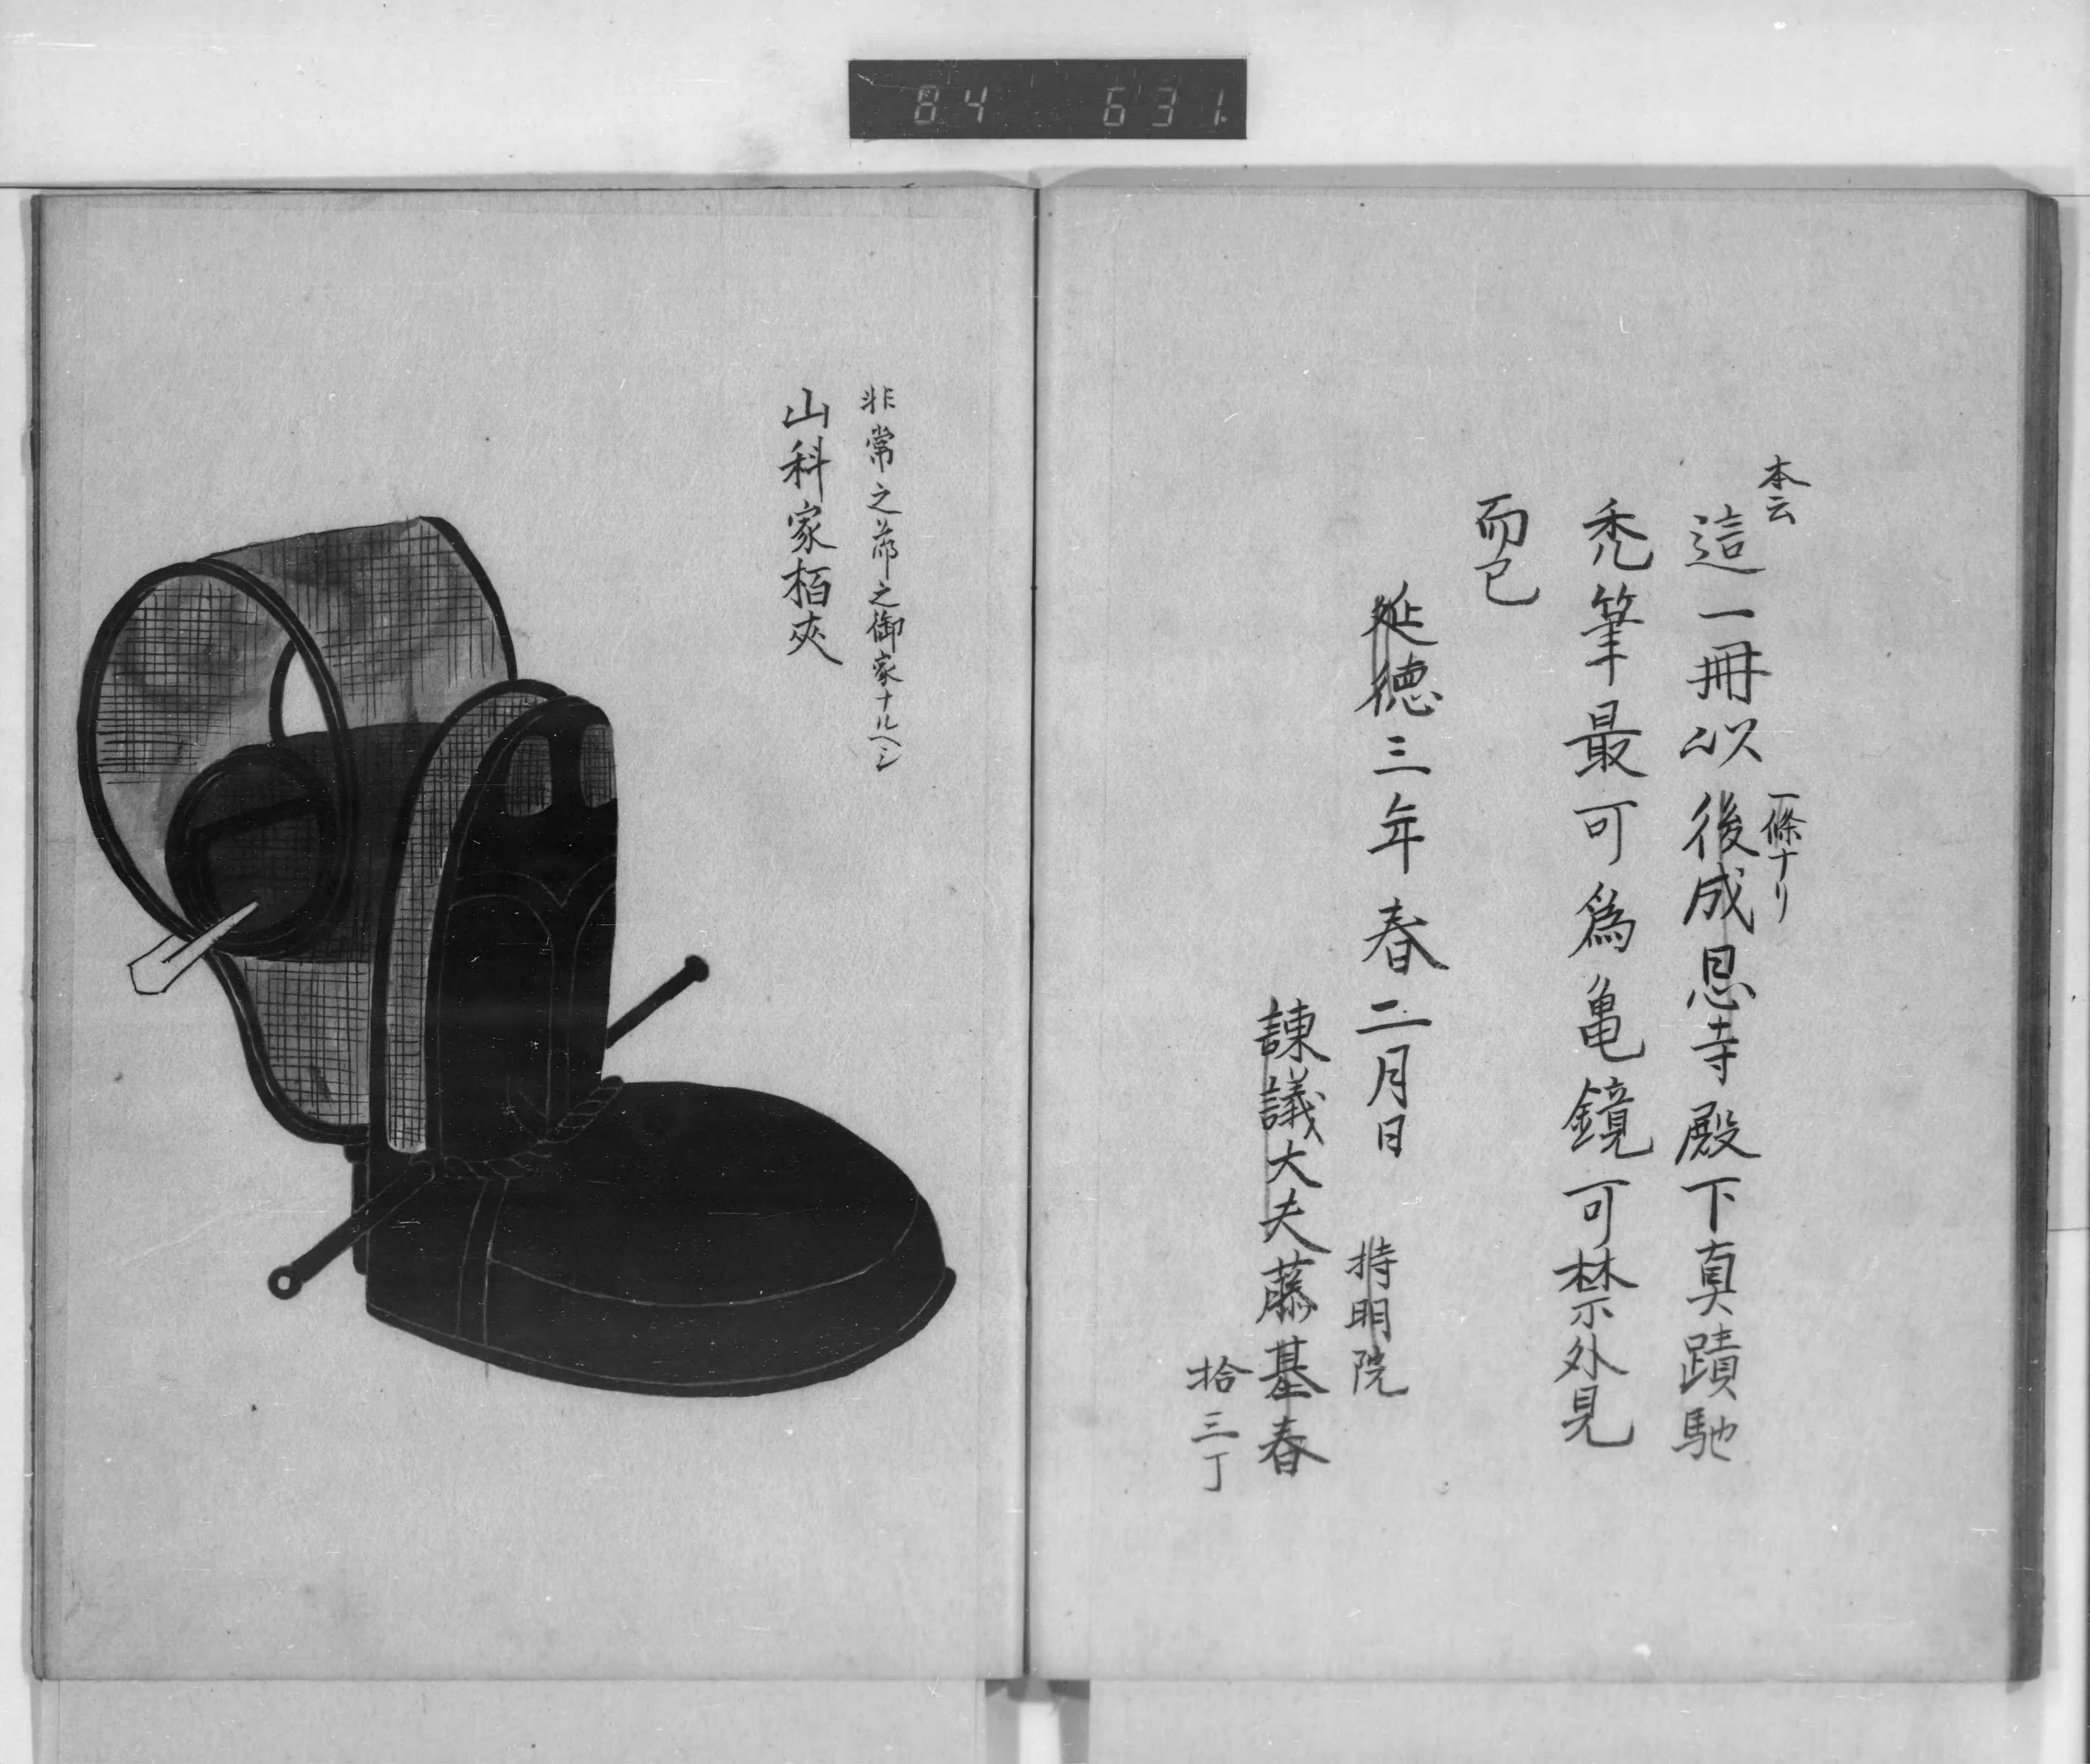 84 631
本云
這一冊以後成恩寺殿下真蹟馳
一條ナリ
禿筆最可為亀鏡可禁外見
而已
延徳三年春二月日 持明院
諫議大夫藤基春
拾三丁
非常之節之御家ナルヘシ
山科家栢夾